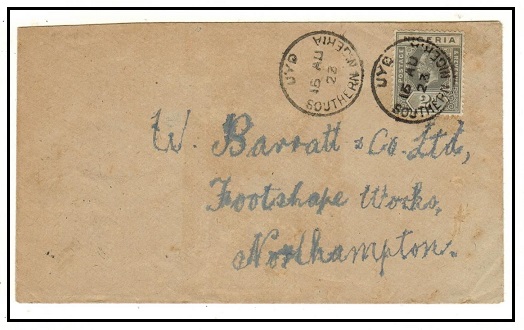 UYO
SOUTHERN NIGERIA
16 AU
23
UYO
SOUTHERN NIGERIA
16 AU
23
NIGERIA
POSTAGE
W. Barratt & Co. Ltd,
Footshape Works,
Northampton.